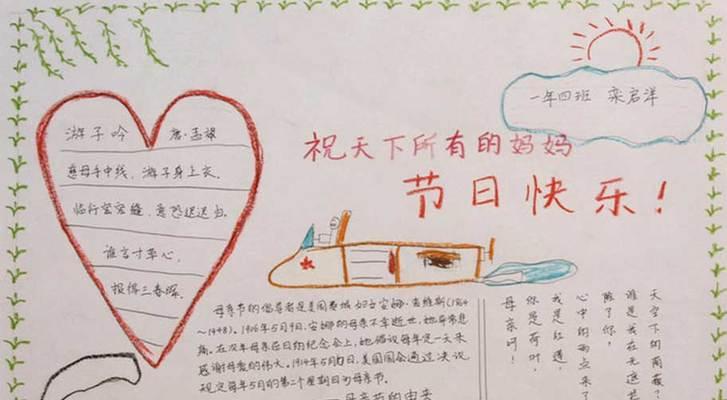 一年四班 栾启洋
祝天下所有的妈妈
节日快乐!
游子吟 唐·孟郊
慈母手中线,游子身上衣。
临行密密缝,意恐迟迟归。
谁言寸草心,
报得三春晖。
母亲节的倡导者是美国费城妇女安娜·查维斯(1864
~1948)。1906年5月9日,安娜的母亲不幸逝世,她非常悲
痛。在次年母亲逝世的纪念会上,她倡议每年定一天来
感谢母爱的伟大。1914年5月10日,美国国会通过决议
规定每年5月的第二个星期日为母亲节。
母亲节的由来
母亲啊!
你是荷叶,
我是红莲,
心中的雨点来了
除了你,
谁是我在无遮拦
天空下的荫蔽?